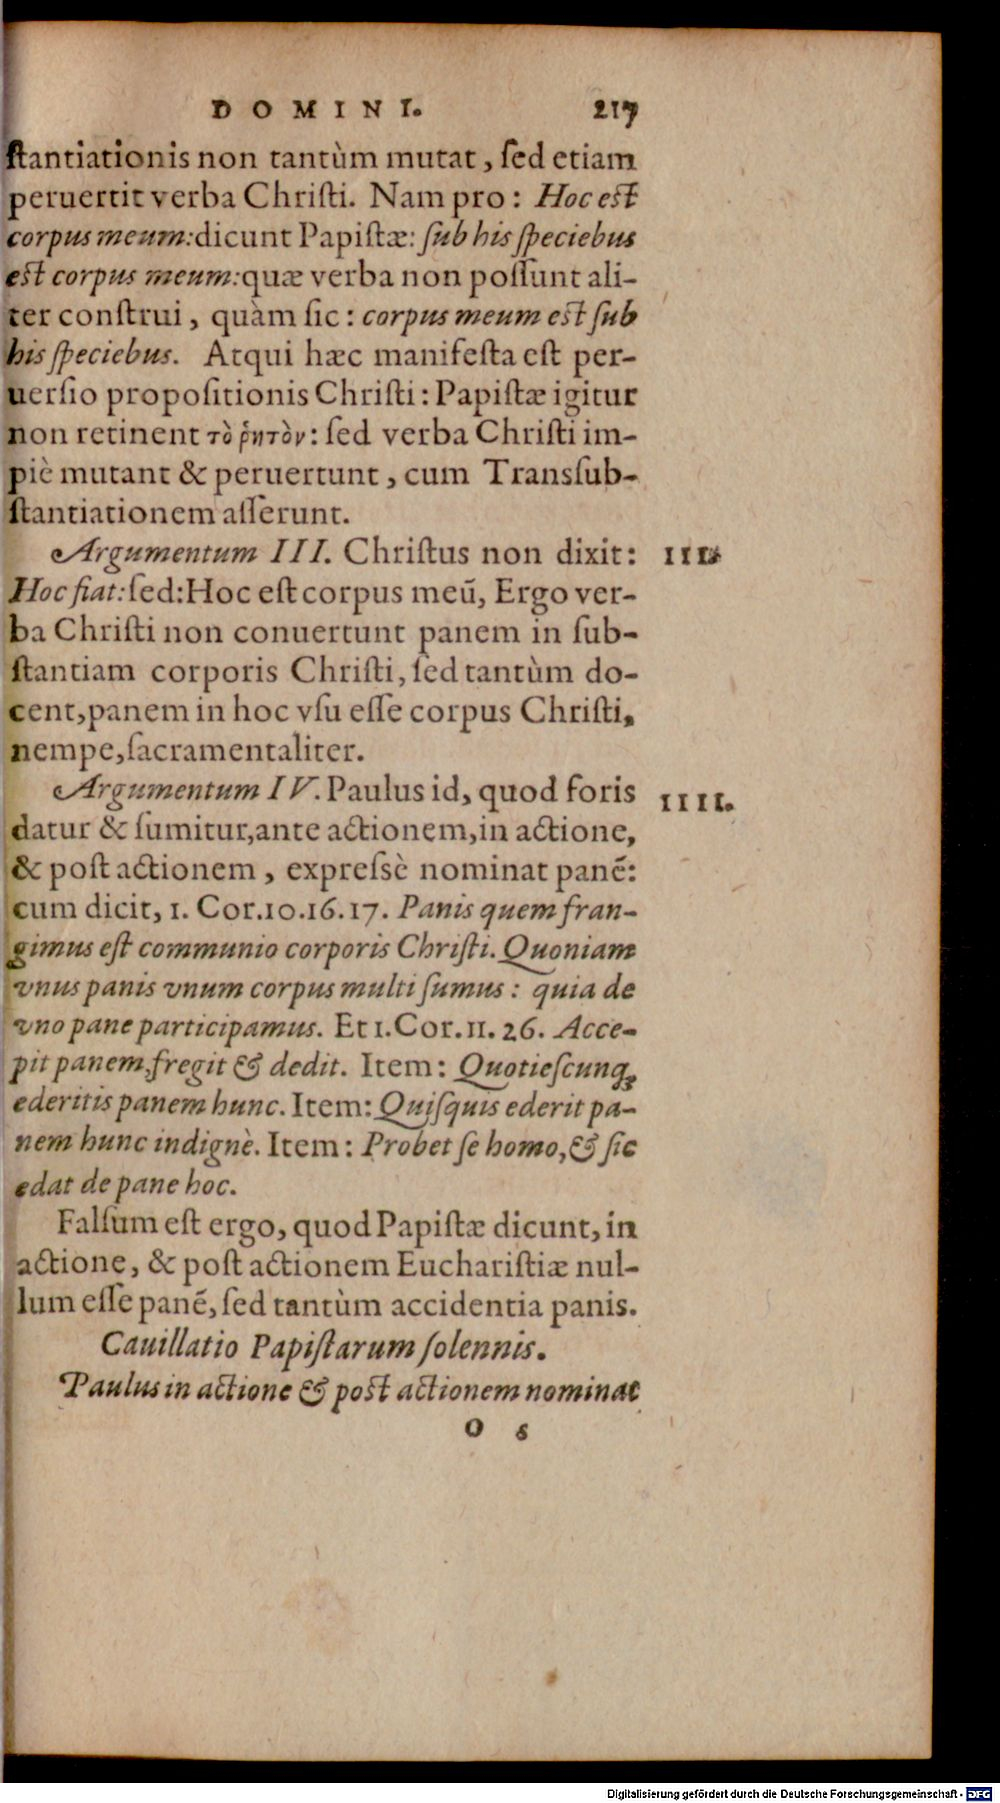 DOMINI. 217
ſtantiationis non tantùm mutat, ſed etiam
peruertit verba Chriſti. Nam pro: Hoc eſt
corpus meum: dicunt Papiſtæ: ſub his ſpeciebus
eſt corpus meum: quæ verba non poſſunt ali-
ter conſtrui, quàm ſic: corpus meum eſt ſub
his ſpeciebus. Atqui hæc manifeſta eſt per-
uerſio propoſitionis Chriſti: Papiſtæ igitur
non retinent τὸ ῥητὸν: ſed verba Chriſti im-
piè mutant & peruertunt, cum Transſub-
ſtantiationem aſſerunt.
Argumentum III. Chriſtus non dixit: III.
Hoc fiat: ſed: Hoc eſt corpus meū, Ergo ver-
ba Chriſti non conuertunt panem in ſub-
ſtantiam corporis Chriſti, ſed tantùm do-
cent, panem in hoc vſu eſſe corpus Chriſti,
nempe, ſacramentaliter.
Argumentum IV. Paulus id, quod foris IIII.
datur & ſumitur, ante actionem, in actione,
& poſt actionem, expreſsè nominat panē:
cum dicit, 1. Cor. 10. 16. 17. Panis quem fran-
gimus eſt communio corporis Chriſti. Quoniam
vnus panis vnum corpus multi ſumus: quia de
vno pane participamus. Et 1. Cor. 11. 26. Acce-
pit panem, fregit & dedit. Item: Quotieſcunq́;
ederitis panem hunc. Item: Quiſquis ederit pa-
nem hunc indignè. Item: Probet ſe homo, & ſic
edat de pane hoc.
Falſum eſt ergo, quod Papiſtæ dicunt, in
actione, & poſt actionem Euchariſtiæ nul-
lum eſſe panē, ſed tantùm accidentia panis.
Cauillatio Papiſtarum ſolennis.
Paulus in actione & poſt actionem nominat
O 5
Digitalisierung gefördert durch die Deutsche Forschungsgemeinschaft - DFG